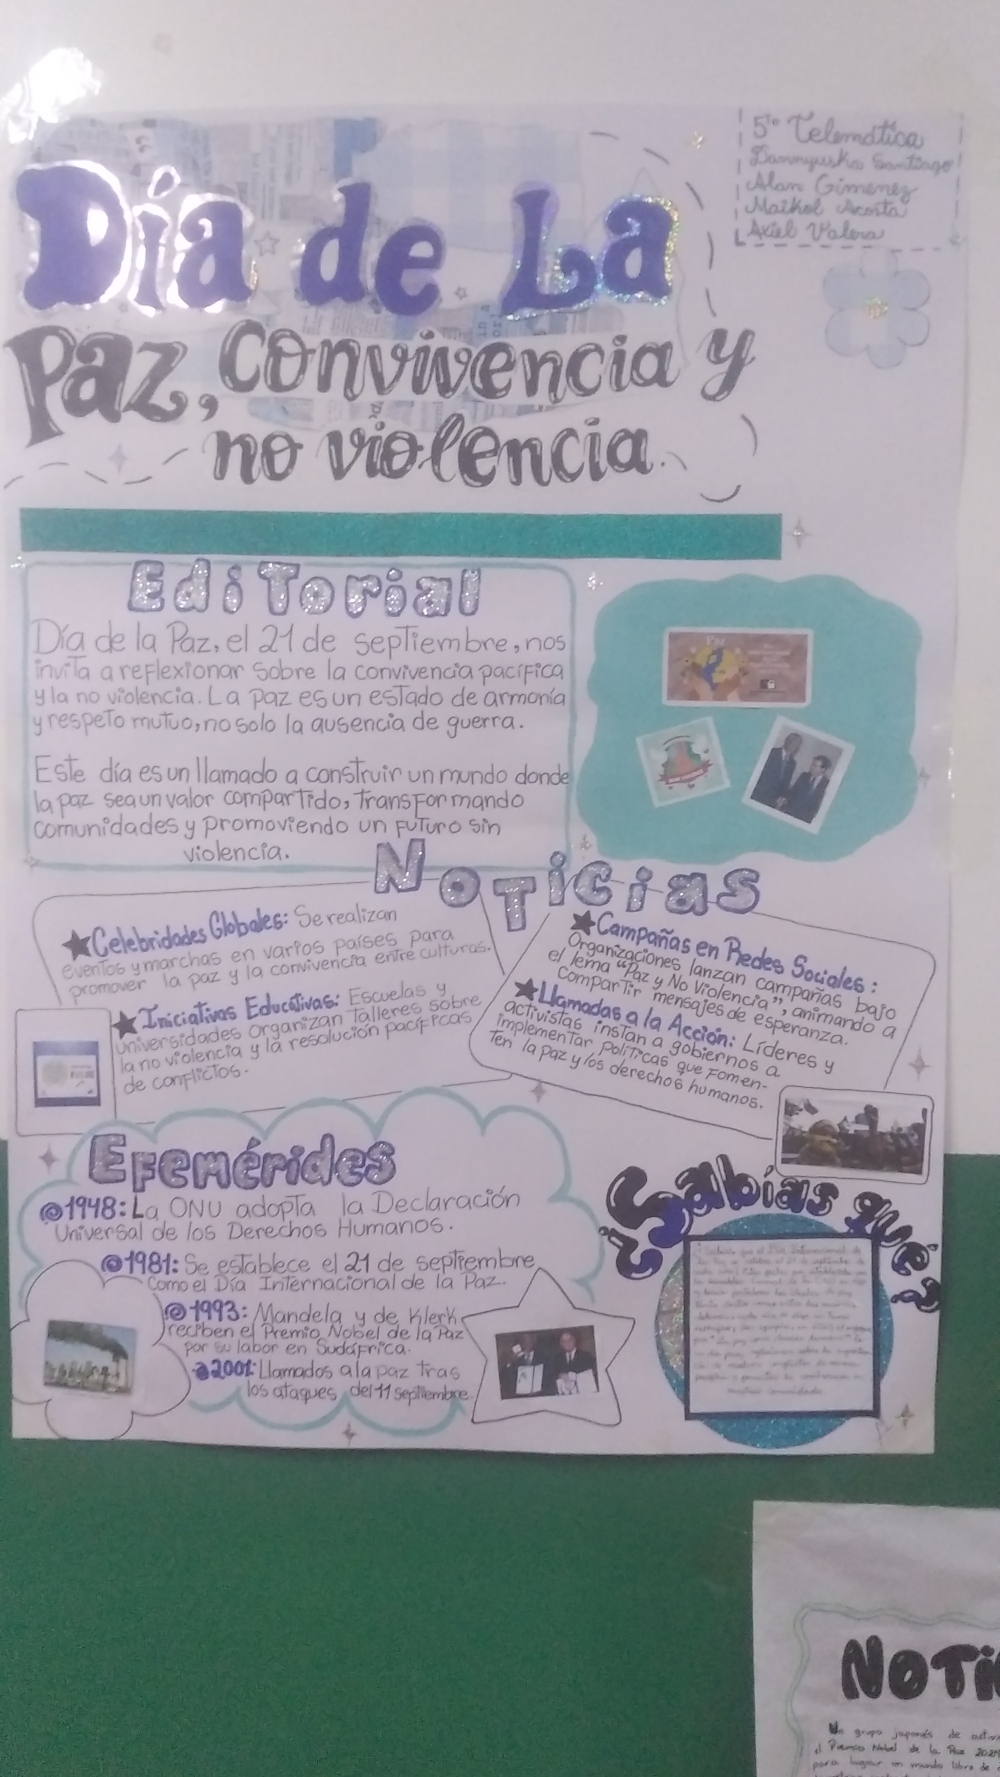 5to Telemática
Dannyuska Santiago
Alan Gimenez
Maikol Acosta
Axiel Valera
Día de La
Paz, convivencia y
no violencia.
Editorial
Día de la Paz, el 21 de septiembre, nos
invita a reflexionar sobre la convivencia pacífica
y la no violencia. La paz es un estado de armonía
y respeto mutuo, no solo la ausencia de guerra.
Este día es un llamado a construir un mundo donde
la paz sea un valor compartido, transformando
comunidades y promoviendo un futuro sin
violencia.
Noticias
Celebridades Globales: Se realizan
eventos y marchas en varios países para
promover la paz y la convivencia entre culturas.
Iniciativas Educativas: Escuelas y
universidades organizan talleres sobre
la no violencia y la resolución pacíficas
de conflictos.
Campañas en Redes Sociales:
Organizaciones lanzan campañas bajo
el lema "Paz y No Violencia", animando a
compartir mensajes de esperanza.
Llamadas a la Acción: Líderes y
activistas instan a gobiernos a
implementar políticas que fomen-
ten la paz y los derechos humanos.
Efemérides
1948: La ONU adopta la Declaración
Universal de los Derechos Humanos.
1981: Se establece el 21 de septiembre
como el Día Internacional de la Paz.
1993: Mandela y de Klerk
reciben el Premio Nobel de la Paz
por su labor en Sudáfrica.
2001: Llamados a la paz tras
los ataques del 11 septiembre.
¿Sabías que?
NOTI
Un grupo japonés de
el Premio Nobel de la Paz 202
para lograr un mundo libre de